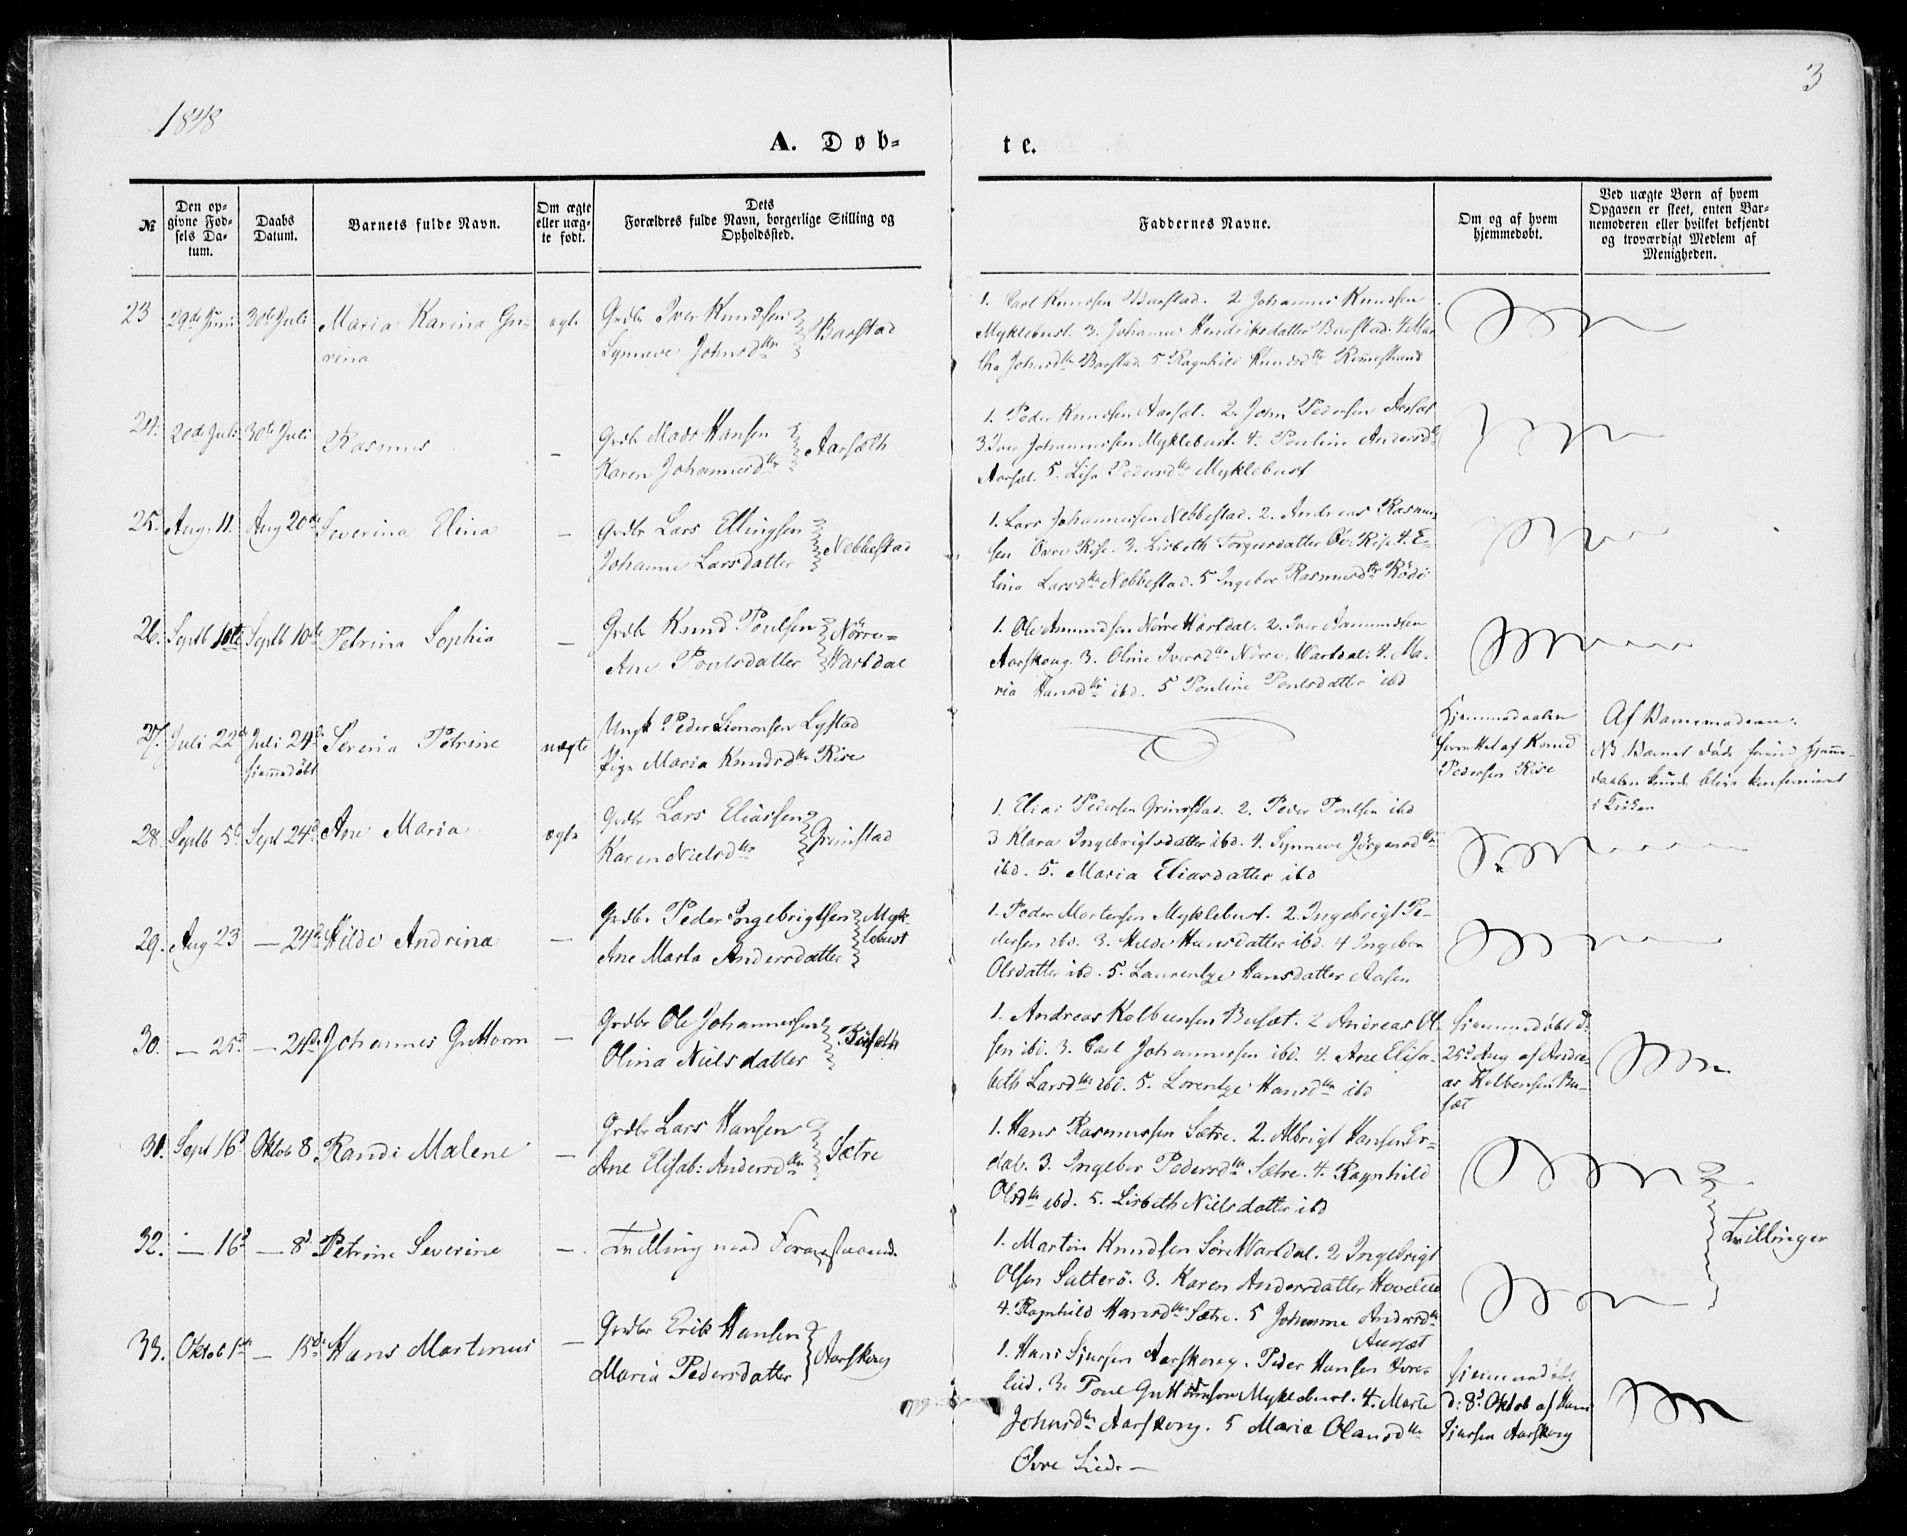 1848
3
A. Døb-
te.
№
Den op-
givne Fød-
sels Da-
tum.
Daabs
Datum.
Barnets fulde Navn.
Om ægte
eller uæg-
te født.
Dets
Forældres fulde Navn, borgerlige Stilling og
Opholdssted.
Faddernes Navne.
Om og af hvem
hjemmedøbt.
Ved uægte Born af hvem
Opgaven er skeet, enten Bar-
nemoderen eller hvilket bekjendt
og troværdigt Medlem af
Menigheden.
23 29de Juni 30te Juli Maria Karina Gu-
rina
ægte
Grdbr Iver Knudsen
Synneve Johnsdtr
Barstad
1. Carl Knudsen Barstad. 2 Johannes Knudsen
Myklebust. 3. Johanne Hendriksdatter Barstad. 4 Mar-
tha Johnsdtr Barstad. 5 Ragnhild Knudsdtr Rimestrand
24. 20de Juli 30te Juli Rasmus —
Grdbr Mads Hansen
Karen Johannesdtr
Aarsæth
1. Peder Knudsen Aarsæt. 2. John Pedersen Aarsæt
3. Iver Johannessen Myklebust. 4. Pouline Andersdtr
Aarsæt. 5. Lisa Pedersdtr Myklebust
25. Aug. 11. Aug 20de Severina Elina —
Grdbr Lars Ellingsen
Johanne Larsdatter
Nebbestad
1. Lars Johannessen Nebbestad. 2. Andreas Rasmus-
sen Øvre Rise. 3. Lisbeth Torgersdatter Øv: Rise. 4. E-
lina Larsdtr Nebbestad. 5 Ingebor Rasmusdtr Rödö
26. Septb 10de Septb 10de Petrina Sophia —
Grdbr Knud Poulsen
Ane Poulsdatter
Nörre-
Wartdal
1. Ole Amundsen Nörre Wartdal. 2. Iver Aamundsen
Aarskoug. 3. Oline Iversdtr Nörre Wartdal. 4. Ma-
ria Hansdtr ibd. 5 Pouline Poulsdatter ibd
27. Juli 22de Juli 24de Severia Petrine uægte
hjemmedøbt
Ungk Peder Simonsen Lystad
Pige Maria Knudsdtr Rise
Hjemmedaaben
forrettet af Knud
Pedersen Rise
Af Barnemoderen.
NB Barnet døde forind Hjemme-
daaben kunde blive konfirmeret
i Kirken
28. Septb 5te Sept 24de Ane Maria ægte
Grdbr Lars Eliassen
Karen Nielsdtr
Grimstad
1. Elias Pedersen Grimstad. 2. Peder Poulsen ibd
3 Klara Ingebrigtsdatter ibd. 4. Synneve Jörgensdtr
ibd. 5. Maria Eliasdatter ibd
29. Aug 23 — 24de Hilde Andrina —
Grdbr Peder Ingebrigtsen
Ane Marta Andersdatter
Myk-
lebust
1. Peder Mortensen Myklebust. 2. Ingebrigt Pe-
dersen ibd. 3. Hilde Hansdatter ibd. 4 Ingebor
Olsdatter ibd. 5. Laurentze Hansdatter Aasen
30. — 25de — 24de Johannes Guttorm —
Grdbr Ole Johannessen
Olina Nielsdatter
Busæth
1. Andreas Kolbeensen Busæt. 2 Andreas Ol-
sen ibd. 3. Carl Johannessen ibd. 4. Ane Elisa-
beth Larsdtr ibd. 5. Lorentze Hansdtr ibd
hjemmedøbt d:
25de Aug af Andre-
as Kolbensen Bu-
sæt
31. Sept 16de Oktob 8 Randi Malene —
Grdbr Lars Hansen
Ane Elisab: Andersdtr
Sætre
1. Hans Rasmussen Sætre. 2. Albrigt Hansen Er-
dal. 3. Ingebor Pedersdtr Sætre. 4. Ragnhild
Olsdtr ibd. 5. Lisbeth Nielsdatter ibd
32. — 16de — 8de Petrine Severine —
Tvilling med Foranstaaende
1. Martin Knudsen Søre Wartdal. 2 Ingebrigt
Olsen Sætterö. 3. Karen Andersdatter
4. Ragnhild Hansdtr Sætre. 5 Johanne Andersdtr
Aursæt
Tvillinger
33. Oktob 1ste — 15de Hans Martinus —
Grdbr Erik Hansen
Maria Pedersdatter
Aarskoug
1. Hans Sjursen Aarskoug. Peder Hansen Øvre-
lied. 3. Poul Guttormsen Myklebust. 4. Marte
Johnsdtr Aarskoug. 5 Maria Olausdtr
Øvre Lied. —
hjemmedøbt
d: 8de Oktob af Hans
Sjursen Aarskoug